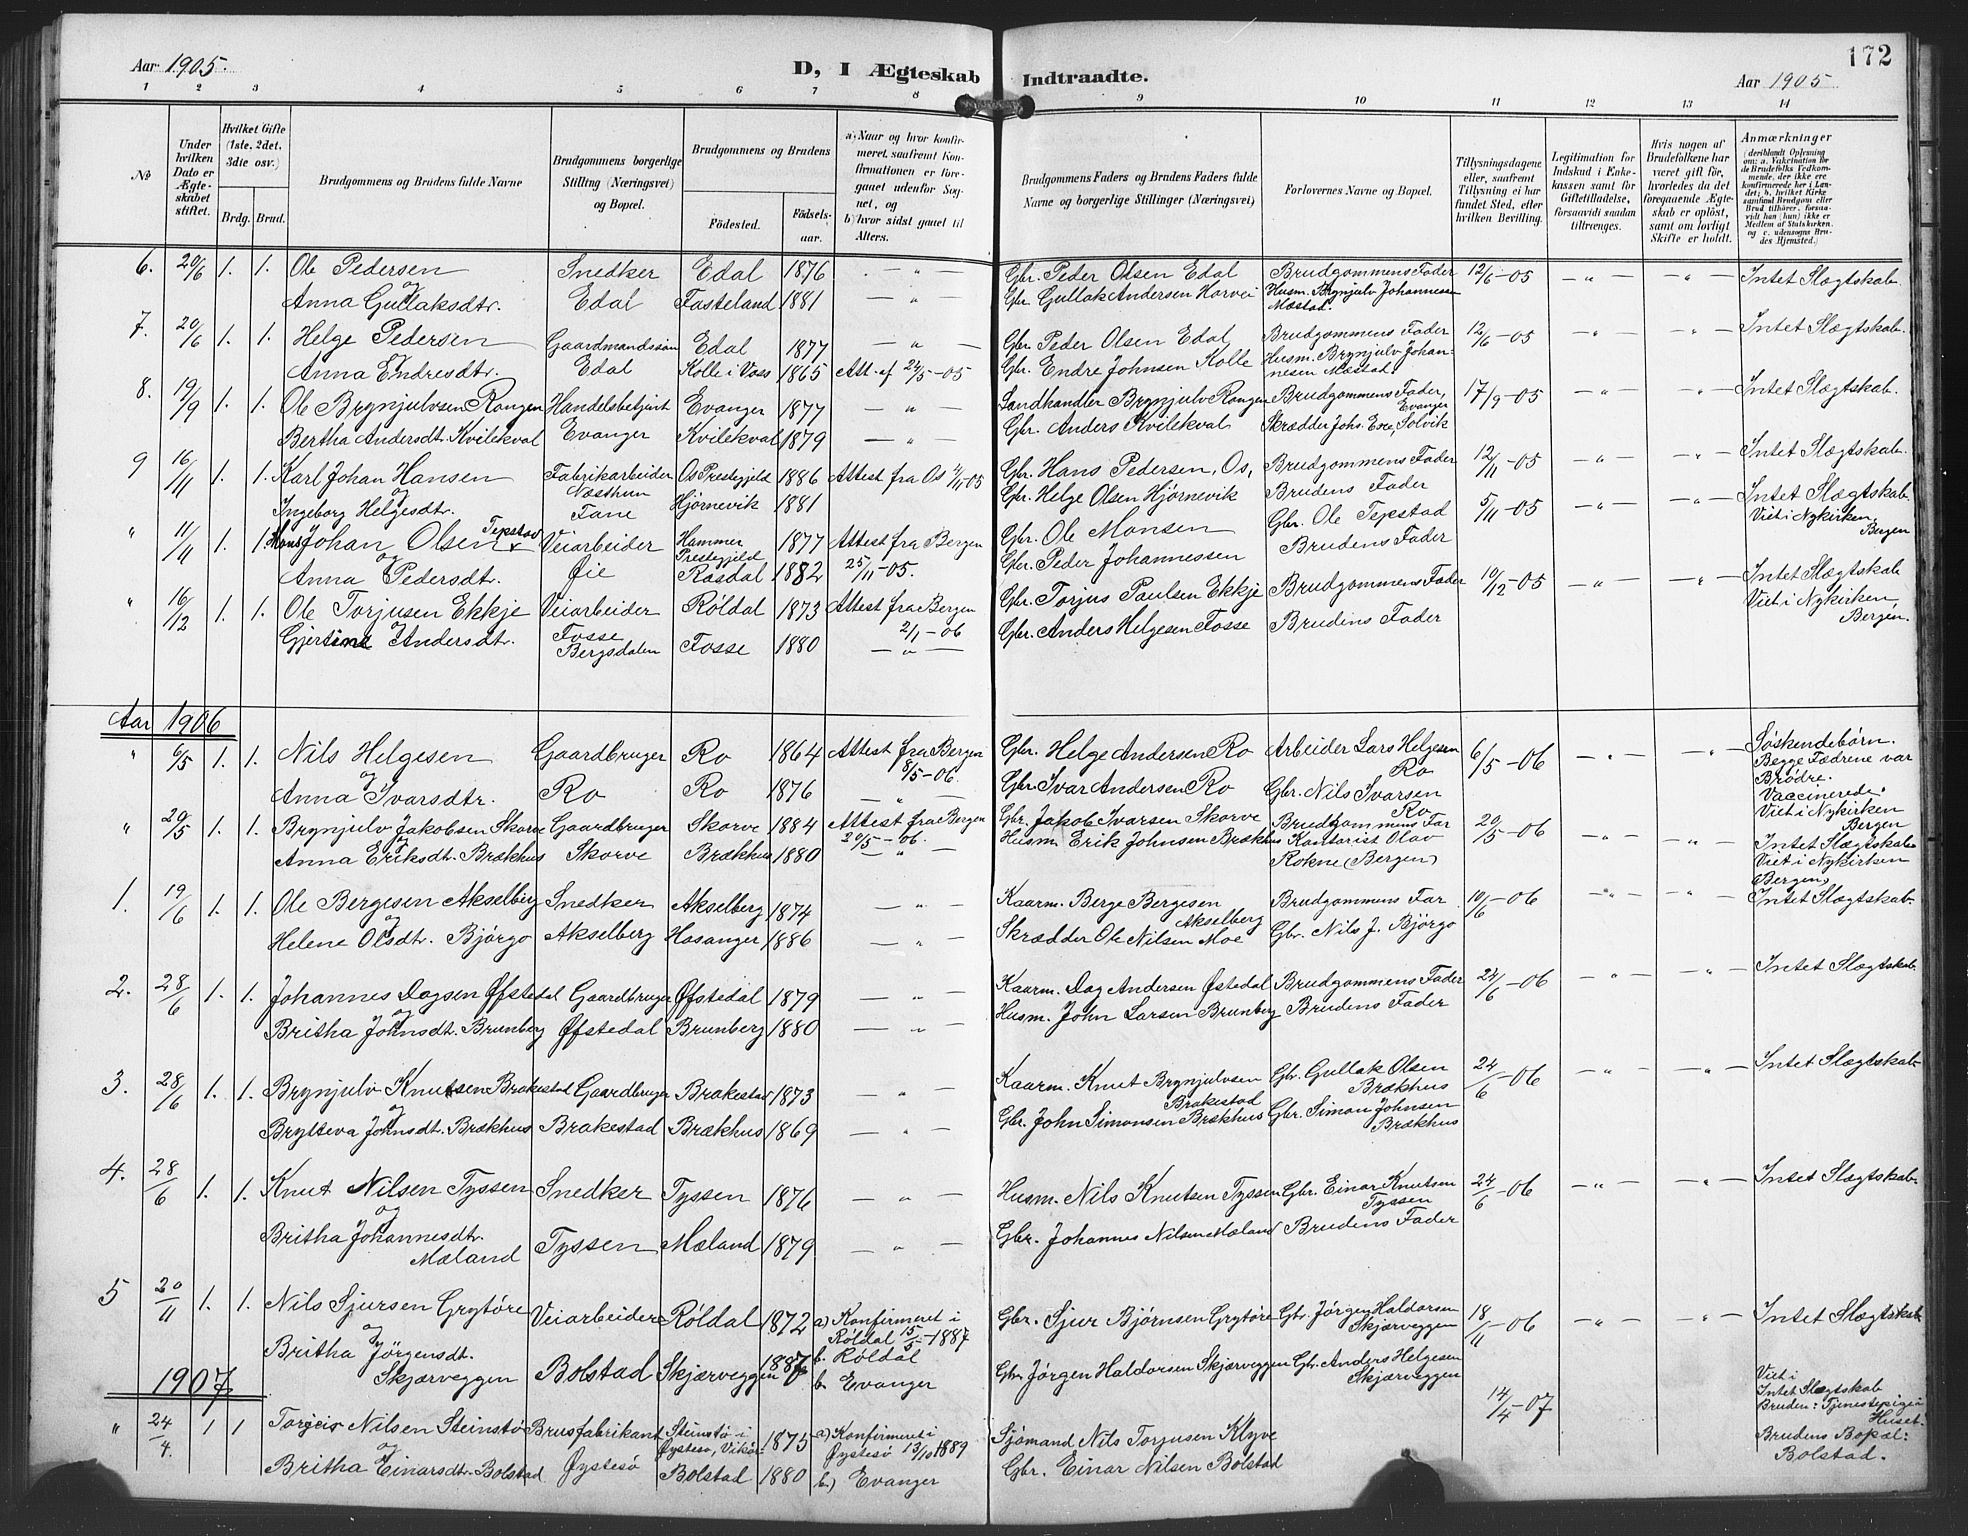 172
Aar 1905.
D, I Ægteskab Indtraadte.
Aar 1905
1 2 3 4 5 6 7 8 9 10 11 12 13 14
No
Under hvilken Dato er Ægteskabet stiftet.
Hvilket Gifte (1ste, 2det, 3die osv.)
Brdg. Brud.
Brudgommens og Brudens fulde Navne
Brudgommens borgerlige Stilling (Næringsvei) og Bopæl.
Brudgommens og Brudens
Fødested.
Fødselsaar.
a) Naar og hvor konfirmeret, saafremt Konfirmationen er foregaaet udenfor Sognet, og
b) hvor sidst gaaet til Alters.
Brudgommens Faders og Brudens Faders fulde Navne og borgerlige Stillinger (Næringsvei)
Forlovernes Navne og Bopæl.
Tillysningsdagene eller, saafremt Tillysning ei har fundet Sted, efter hvilken Bevilling.
Legitimation for Indskud i Enkekassen samt for Giftetilladelse, forsaavidt saadan tiltrænges.
Hvis nogen af Brudefolkene har været gift før, hvorledes da det foregaaende Ægteskab er opløst, samt om lovligt Skifte er holdt.
Anmærkninger
(deriblandt Oplysning om: a. Vakcination for de Brudefolks Vedkommende, der ikke er konfirmerede her i Landet; b. hvilket Kirkesamfund Brudgom eller Brud tilhører, forsaavidt han (hun) ikke er Medlem af Statskirken, og c. udensogns Brudes Hjemsted.)
6. 20/6 1. 1. Ole Pedersen Snedker Edal 1876 — " — Gbr. Peder Olsen Edal Brudgommens Fader 12/6-05 — " — — " — Intet Slægtskab.
og
Anna Gullaksdtr. Edal Fasteland 1881 — " — Gbr. Gullak Andersen Horvei Husm. Brynjulv Johannesen Mæstad.
7. 20/6 1. 1. Helge Pedersen Gaardmandssøn Edal 1877 — " — Gbr. Peder Olsen Edal Brudgommens Fader 12/6-05 — " — — " — Intet Slægtskab.
og
Anna Endresdtr. Edal Kolle i Voss 1865 Att. af 24/5-05 Gbr. Endre Johnsen Kolle Husm. Brynjulv Johannesen Mæstad.
8. 19/9 1. 1. Ole Brynjulvsen Rongen Handelsbetjent Evanger 1877 — " — Landhandler Brynjulv Rongen Brudgommens Fader, Evanger 17/9-05 — " — — " — Intet Slægtskab.
Bertha Andersdt. Kvilekval Evanger Kvilekval 1879 — " — Gbr. Anders Kvilekval Skrædder Johs. Solvik
9 16/11 1. 1. Karl Johan Hansen Fabrikarbeider Os Prestegjeld 1886 Attest fra Os Gbr. Hans Pedersen, Os, Brudgommens Fader 12/11-05 — " — — " — Intet Slægtskab.
og
Ingeborg Helgesdtr. Fane Hjørnevik 1881 Gbr. Helge Olsen Hjørnevik Brudens Fader
" 11/11 1. 1. Mons Johan Olsen Tepstad Veiarbeider Hammer Prestegjeld 1877 Attest fra Bergen 25/11-05. Gbr. Ole Monsen Gbr. Ole Tepstad 5/11-05 — " — — " — Intet Slægtskab. Viet i Nykirken, Bergen
og
Anna Pedersdtr. Øie Rasdal 1882 Gbr. Peder Johannessen Brudens Fader
" 16/12 1. 1. Ole Torjusen Ekkje Veiarbeider Røldal 1873 Attest fra Bergen 2/1-06 Gbr. Torjus Paulsen Ekkje Brudgommens Fader 10/12-05 — " — — " — Intet Slægtskab Viet i Nykirken Bergen.
og
Gjertine Andersdt. Fosse Bergsdalen Fosse 1880 — " — Gbr. Anders Helgesen Fosse Brudens Fader
Aar 1906
" 6/5 1. 1. Nils Helgesen Gaardbruger Ro 1864 Attest fra Bergen 8/5-06. Gbr. Helge Andersen Ro Arbeider Lars Helgesen Ro 6/5-06 — " — — " — Søskendebørn. Begge Fædrene var Brødre. Vaccinerede. Viet i Nykirken Bergen
og
Anna Ivarsdtr. Ro Ro 1876 — " — Gbr. Ivar Andersen Ro Gbr. Nils Ivarsen Ro
" 20/5 1. 1. Brynjulv Jakobsen Skorve Gaardbruger Skorve 1884 Attest fra Bergen 20/5-06. Gbr. Jakob Ivarsen Skorve Brudgommens Far 20/5-06 — " — — " — Intet Slægtskab. Viet i Nykirken Bergen.
og
Anna Eriksdt. Brækhus Skorve Brækhus 1880 — " — Husm. Erik Johnsen Brækhus Kontorist Olav Rokne (Bergen)
1. 19/6 1. 1. Ole Bergesen Akselberg Snedker Akselberg 1874 — " — Kaarm. Berge Bergesen Akselberg Brudgommens Far 10/6-06 — " — — " — Intet Slægtskab.
og
Helene Olsdtr. Bjørgo Akselberg Hosanger 1886 — " — Skrædder Ole Nilsen Moe Gbr. Nils J. Bjørgo
2. 28/6 1. 1. Johannes Dagsen Øfstedal Gaardbruger Øfstedal 1879 — " — Kaarm. Dag Andersen Øfstedal Brudgommens Fader 24/6-06 — " — — " — Intet Slægtskab.
og
Britha Johnsdt. Brunberg Øfstedal Brunberg 1880 — " — Husm. John Larsen Brunberg Brudens Fader
3. 28/6 1. 1. Brynjulv Knutsen Brakestad Gaardbruger Brakestad 1873 — " — Kaarm. Knut Brynjulvsen Brakestad Gbr. Gullak Olsen Brækhus 24/6-06 — " — — " — Intet Slægtskab.
og
Brytteva Johnsdt. Brækhus Brakestad Brækhus 1869 — " — Gbr. John Simonsen Brækhus Gbr. Simon Johnsen Brækhus
4. 28/6 1. 1. Knut Nilsen Tyssen Snedker Tyssen 1876 — " — Husm. Nils Knutsen Tyssen Gbr. Einar Knutsen Tyssen 24/6-06 — " — — " — Intet Slægtskab.
og
Britha Johannesdtr. Mæland Tyssen Mæland 1879 — " — Gbr. Johannes Nilsen Mæland Brudens Fader
5 20/11 1. 1. Nils Sjursen Grytøre Veiarbeider Røldal 1872 a) Konfirmeret i Røldal 15/5-1887 b. Røldal Gbr. Sjur Bjørnsen Grytøre Gbr. Jørgen Haldorsen Skjærveggen 18/11-06 — " — — " — Intet Slægtskab.
og
Britha Jørgensdt. Skjærveggen Bolstad Skjærveggen 1887 b. Evanger Gbr. Jørgen Haldorsen Skjærveggen Gbr. Anders Helgesen Skjærveggen
1907
" 24/4. 1 1 Torgeir Nilsen Steinstø Brusfabrikant Steinstø i Øystesø, Vikør: 1875 a) Konfirmeret i Øystesø 13/10 1889 Sjømand Nils Torjusen Klyve 14/4-07 Viet i Intet Slægtskab Bruden: Tjenestepige i Huset.
og
Britha Einarsdt. Bolstad Øystesø Bolstad 1880 b.) Evanger Gbr. Einar Nilsen Bolstad Brudens Bopæl: Bolstad.